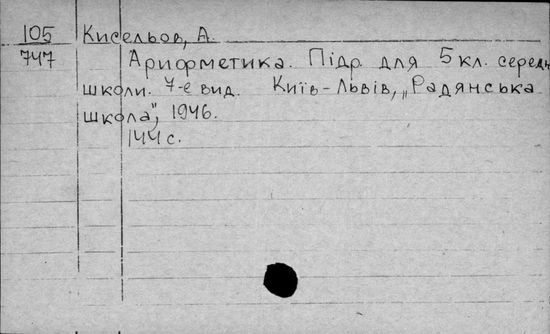 105 Кисельов, А.
747 Арифметика. Підр. для 5 кл. середн.
школи. 7-е вид. Київ-Львів, „Радянська
школа", 1946.
144 с.